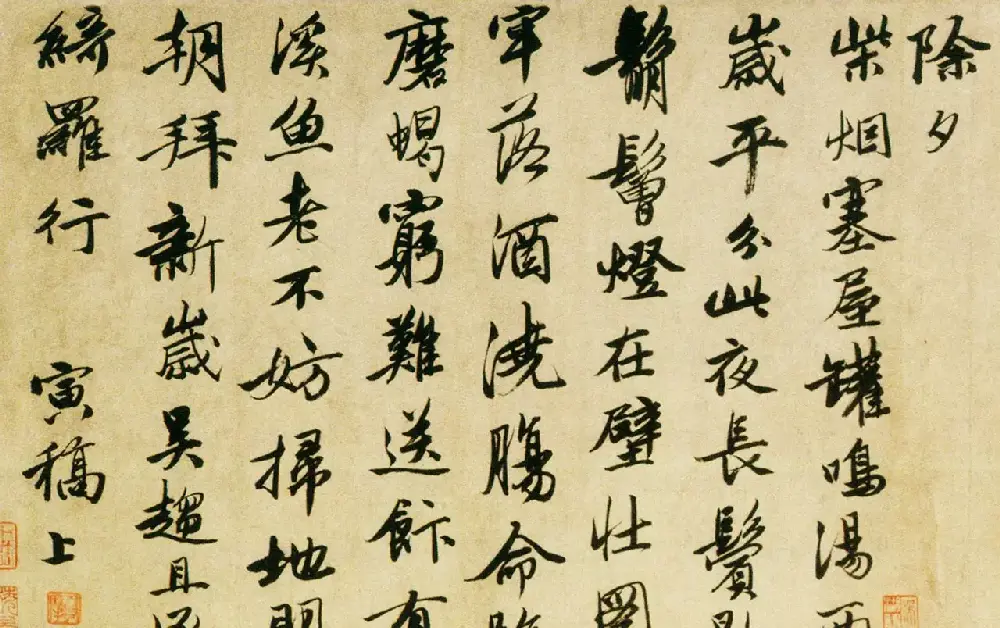 除夕
柴烟塞屋罐鳴湯
歲平分此夜長鬢
鬅鬙燈在壁壯圖
牢落酒澆腸命
磨蝎窮難送飰有
溪魚老不妨掃地
朝拜新歲吴趨且
綺羅行 寅稿上